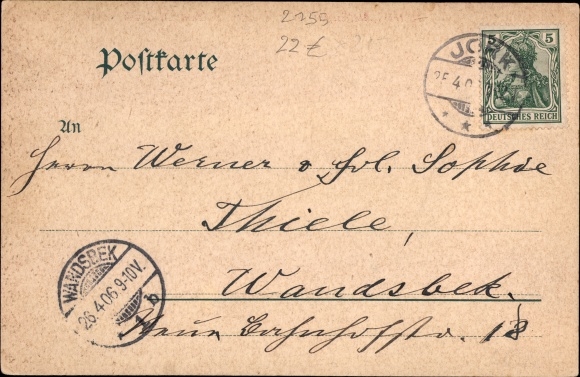 2155
22 €
Postkarte
JORK
25.4.0
5
DEUTSCHES REICH
An
Herrn Werner & Frl. Sophie
Thiele,
Wandsbek.
Neue Bahnhofstr. 18
WANDSBEK
26.4.06. 9-10V.
1 b